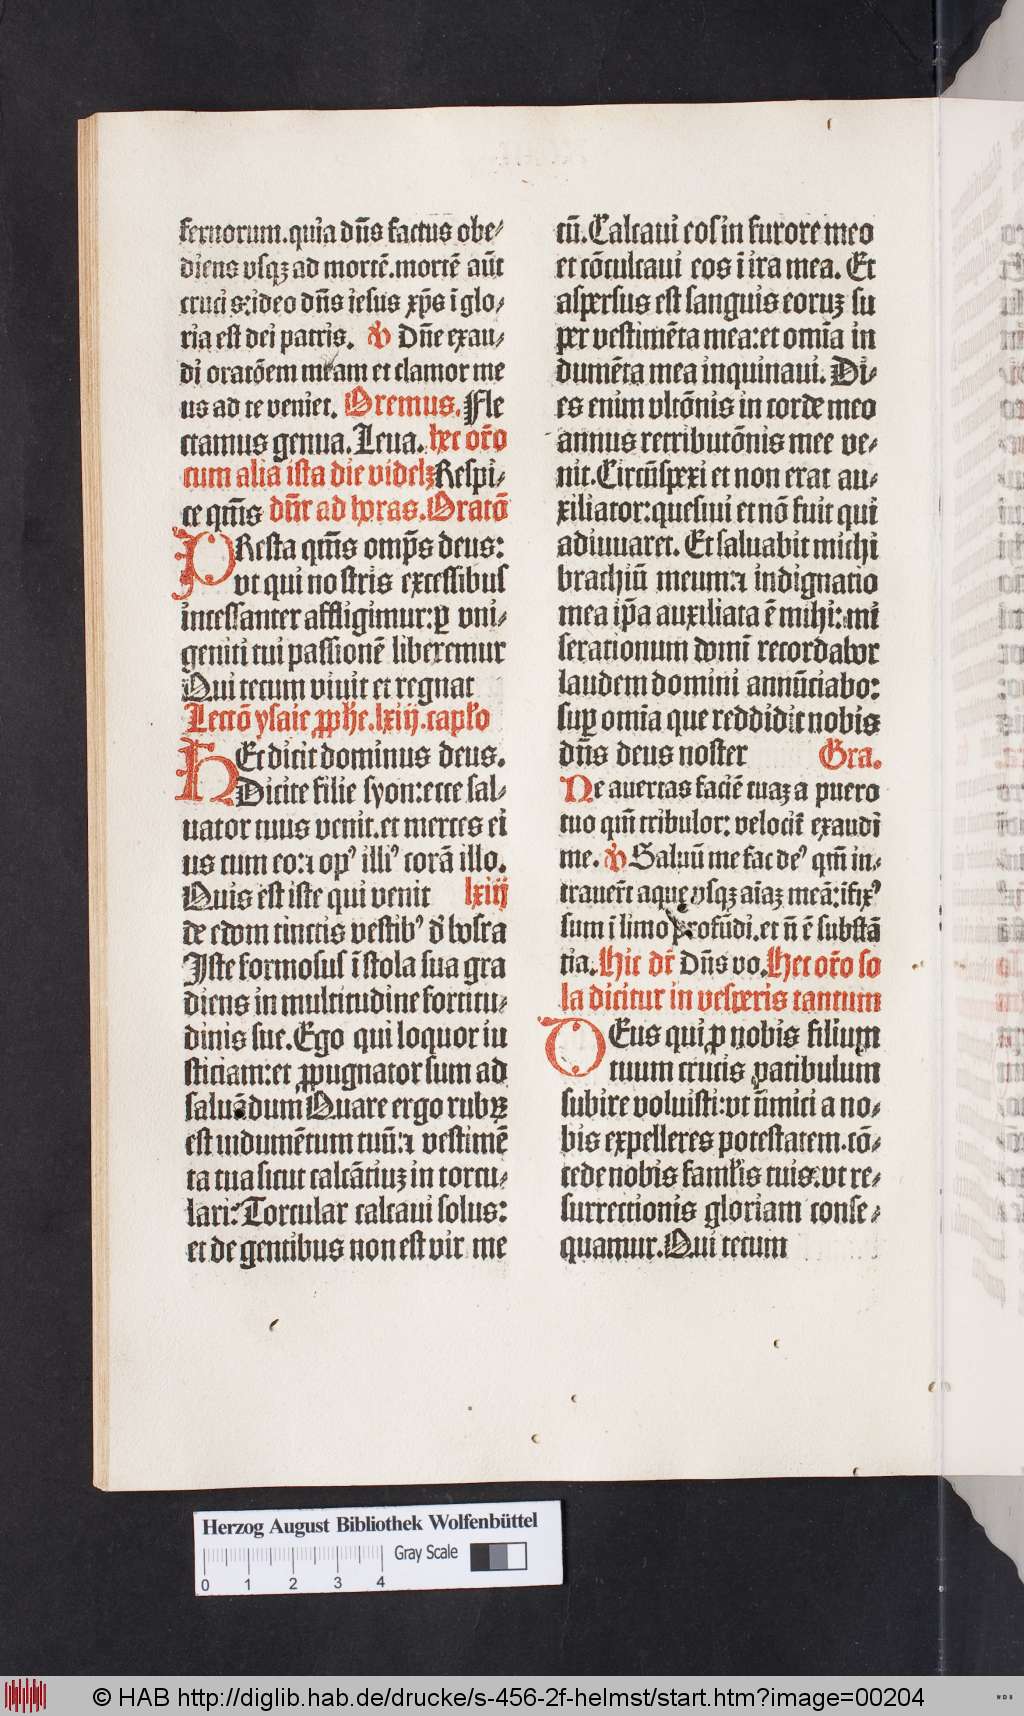 fernorum.quia dn̄s factus obe⸗
diens vsqꝫ ad mortē.mortē aūt
crucis:ideo dn̄s iesus xp̄s ī glo⸗
ria est dei patris. ℣ Dn̄e exau⸗
di oratōem meam et clamor me
us ad te veniet. Oremus. Fle
ctamus genua. Leua. hec or̄o
cum alia ista die videlꝫ Respi⸗
ce qm̄s dn̄r ad horas. Oratō
PResta qm̄s omp̄s deus:
vt qui nostris excessibus
incessanter affligimur:ꝑ vni⸗
geniti tui passionē liberemur
Qui tecum viuit et regnat
Lectō ysaie ꝓphe.lxiij.capło
HEc dicit dominus deus.
Dicite filie syon:ecce sal⸗
uator tuus venit.et merces ei
us cum eo:⁊ opꝰ illiꝰ corā illo.
Quis est iste qui venit lxiij
de edom tinctis vestibꝰ d̄ bosra
Iste formosus ī stola sua gra
diens in multitudine fortitu⸗
dinis sue. Ego qui loquor iu
sticiam:et ꝓpugnator sum ad
saluādum Quare ergo rubꝝ
est indumētum tuū:⁊ vestimē
ta tua sicut calcātiuꝫ in torcu⸗
lari: Torcular calcaui solus:
et de gentibus non est vir me
cū. Calcaui eos in furore meo
et cōculcaui eos ī ira mea. Et
aspersus est sanguis eoruꝫ su
per vestimēta mea:et omīa in
dumēta mea inquinaui. Di⸗
es enim vltōnis in corde meo
annus retributōnis mee ve⸗
nit. Circūspexi et non erat au⸗
xiliator:quesiui et nō fuit qui
adiuuaret. Et saluabit michi
brachiū meum:⁊ indignatio
mea ip̄a auxiliata ē mihi: mi
serationum domī recordabor
laudem domini annūciabo:
suꝑ omīa que reddidit nobis
dn̄s deus noster Gra.
Ne auertas faciē tuaꝫ a puero
tuo qm̄ tribulor: velocit̄ exaudi
me. ℣ Saluū me fac deꝰ qm̄ in⸗
trauer̄t aque vsqꝫ aīaꝫ meā:ifixꝰ
sum ī limo profūdi.et n̄ ē substā
tia. Hic dr̄ Dn̄s vo. Hec or̄o so
la dicitur in vesperis tantum
DEus qui ꝓ nobis filium
tuum crucis patibulum
subire voluisti:vt īīmici a no⸗
bis expelleres potestatem.cō⸗
cede nobis famłis tuis.vt re⸗
surrectionis gloriam conse⸗
quamur. Qui tecum
Herzog August Bibliothek Wolfenbüttel
Gray Scale
0 1 2 3 4
© HAB http://diglib.hab.de/drucke/s-456-2f-helmst/start.htm?image=00204